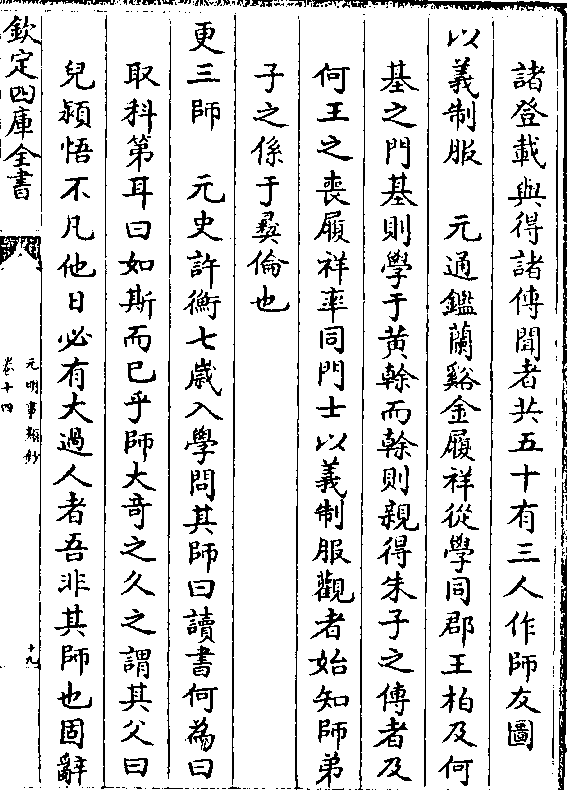 諸登載與得諸傳聞者共五十有三人作師友圖
以義制服　元通鑑蘭谿金履祥從學同郡王柏及何
基之門基則學于黄榦而榦則親得朱子之傳者及
何王之喪履祥率同門士以義制服觀者始知師弟
子之係于彞倫也
更三師　元史許衡七歲入學問其師曰讀書何為曰
取科第耳曰如斯而已乎師大竒之久之謂其父曰
兒潁悟不凡他日必有大過人者吾非其師也固辭
欽定四庫全書
元明事類鈔
卷十四
十九